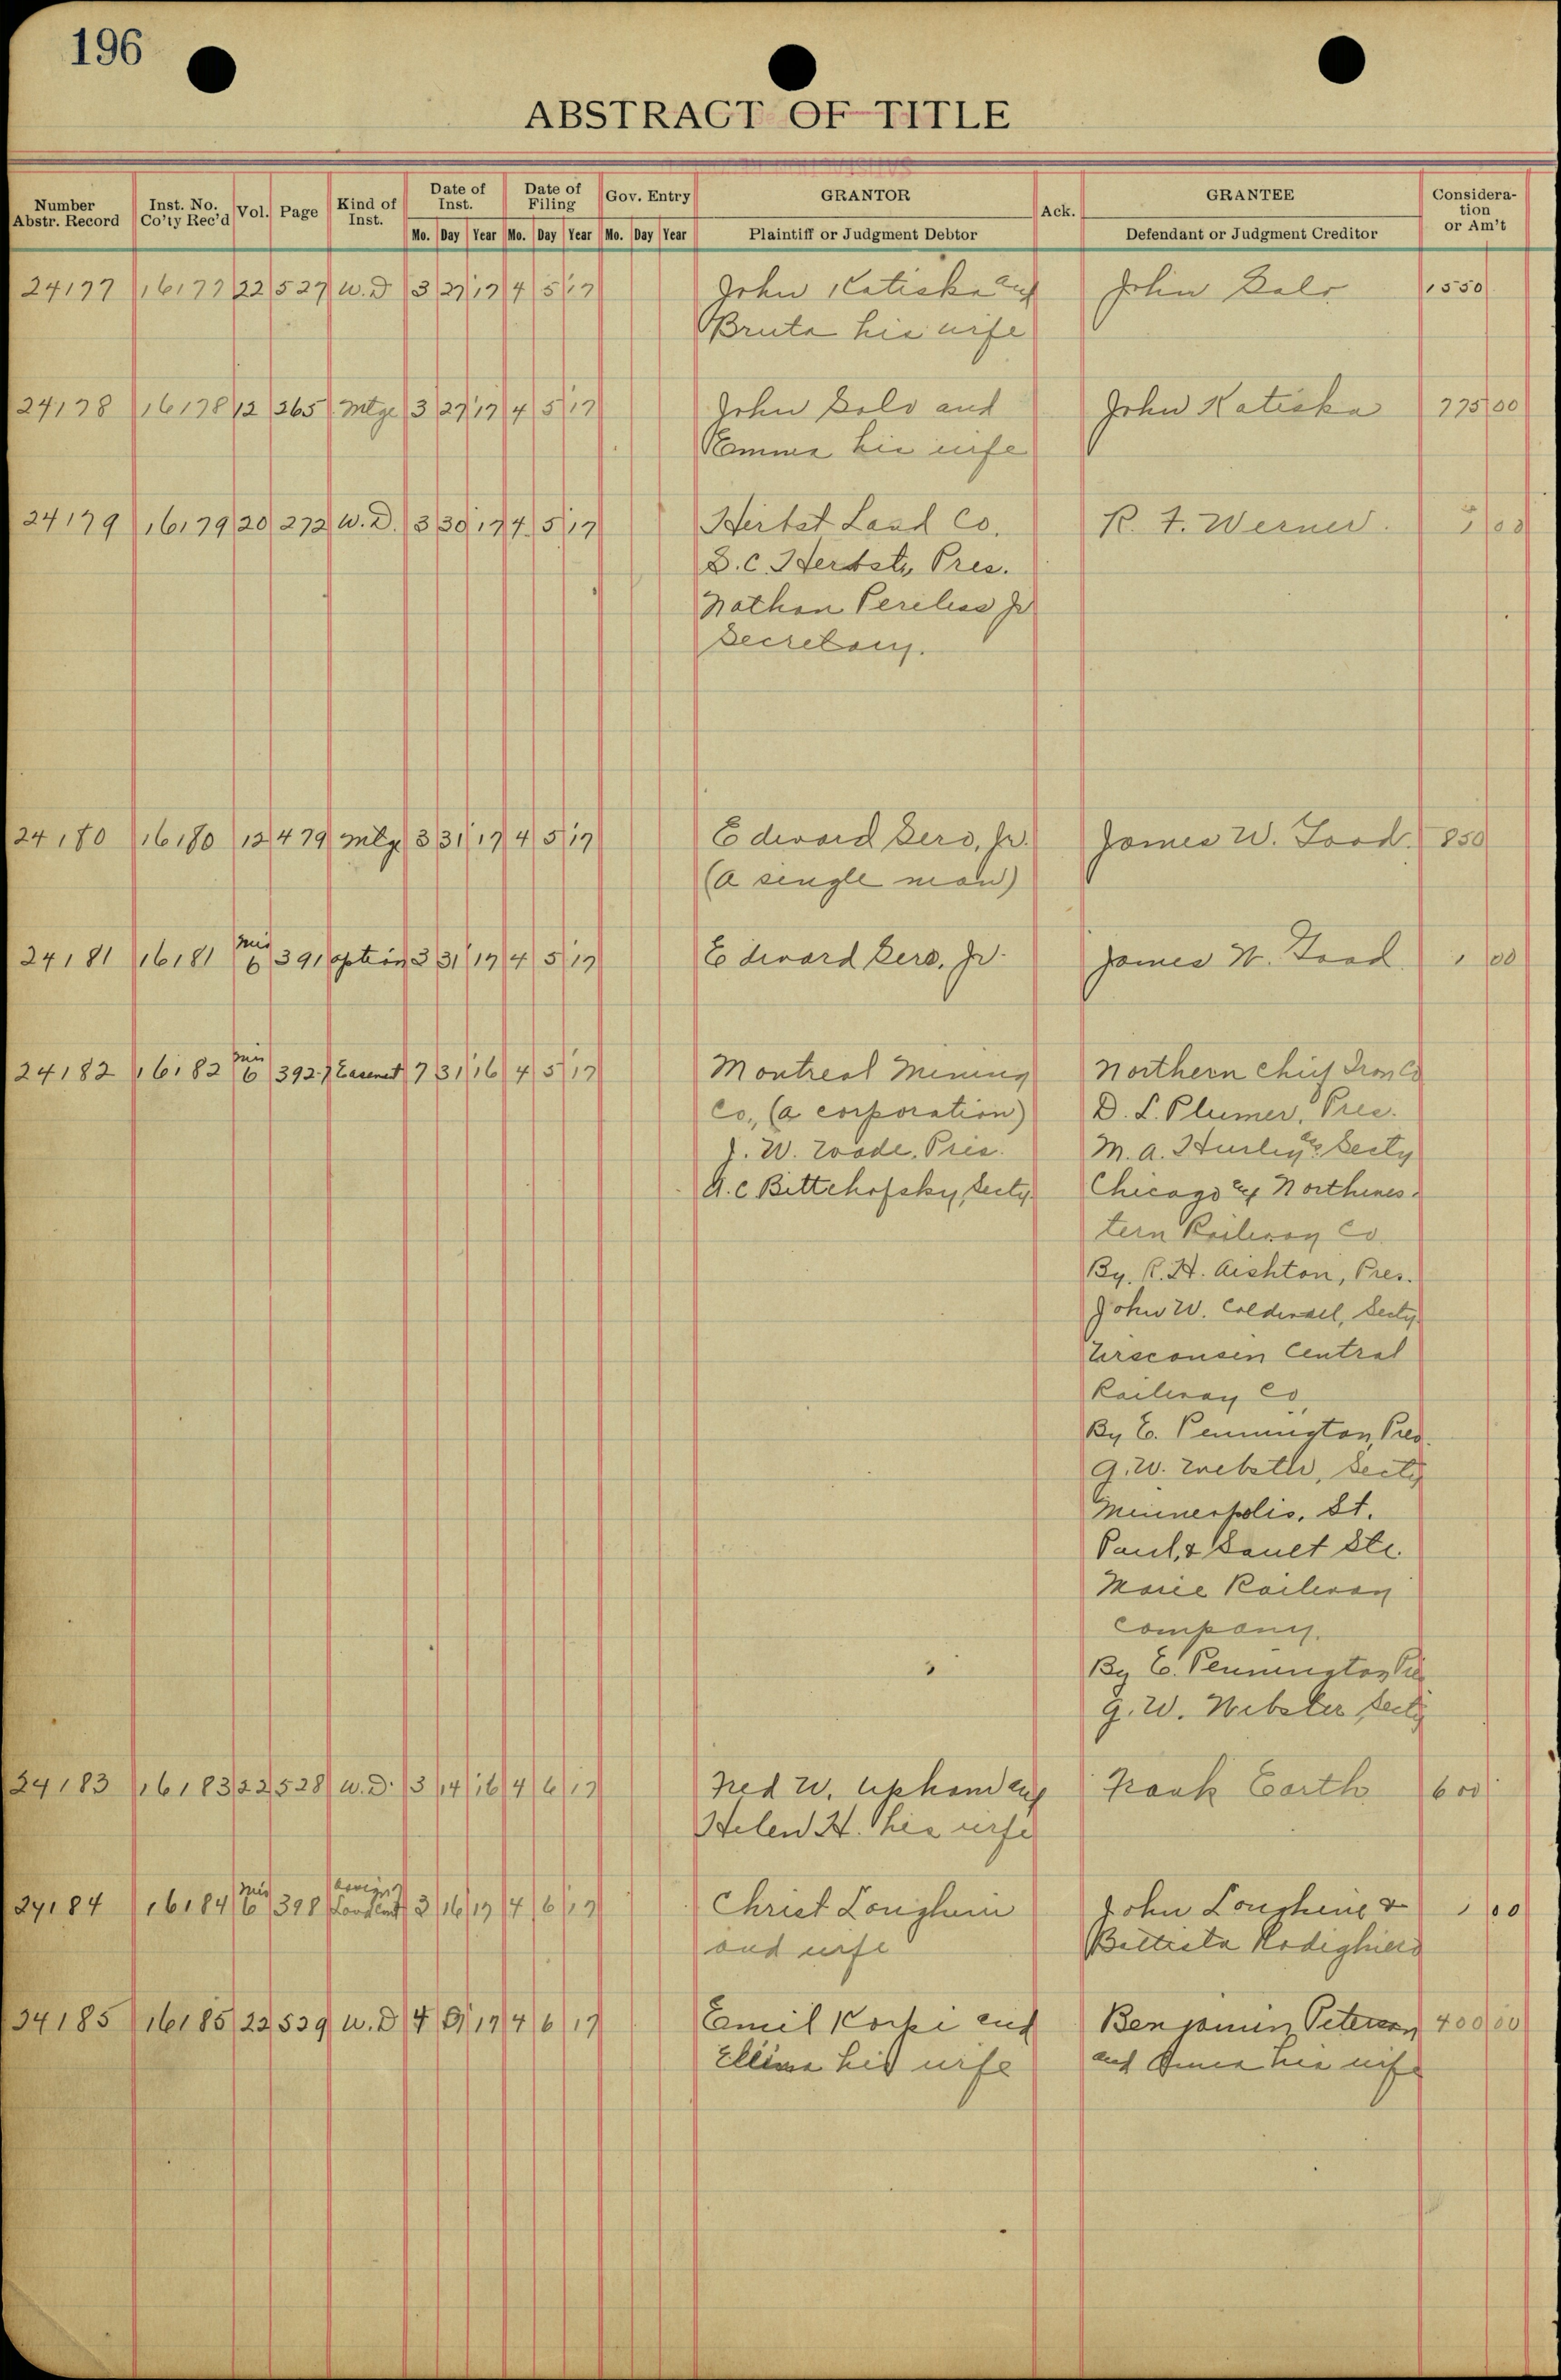 196
ABSTRACT OF TITLE
Number Abstr. Record Inst. No. Co'ty Rec'd Vol. Page Kind of Inst. Date of Inst. Date of Filing Gov. Entry GRANTOR Ack. GRANTEE Consideration or Am't
Mo. Day Year Mo. Day Year Mo. Day Year Plaintiff or Judgment Debtor Defendant or Judgment Creditor
24177 16177 22 527 W.D 3 27 17 4 5 17 John Katiska and John Salo 1550
Bruta his wife
24178 16178 12 265 Mtge 3 27 17 4 5 17 John Salo and John Katiska 775 00
Emma his wife
24179 16179 20 272 W.D. 3 30 17 4 5 17 Herbst Land Co. R. F. Werner. 1 00
S.C. Herbst, Pres.
Nathan Pereles Jr
Secretary.
24180 16180 12 479 Mtge 3 31 17 4 5 17 Edward Sero, Jr. James W. Good. 850
(a single man)
24181 16181 Mis 6 391 option 3 31 17 4 5 17 Edward Sero, Jr. James W. Good 1 00
24182 16182 Mis 6 392-7 Easemet 7 31 16 4 5 17 Montreal Mining Northern Chief Iron Co
Co., (a corporation) D. L. Plumer, Pres.
J. W. Wade, Pres. M. A. Hurley Secty
A. C. Bittchofsky, Secty Chicago and Northwes-
tern Railway Co.
By R. H. Aishton, Pres.
John W. Calderwell, Secty
Wisconsin Central
Railway Co,
By E. Pennington, Pres.
G. W. Webster, Secty
Minneapolis, St.
Paul, & Sault Ste.
Marie Railway
Company.
By E. Pennington Pres
G. W. Webster, Secty
24183 16183 22 528 W.D. 3 14 16 4 6 17 Fred W. Upham and Frank Earth 600
Helen H. his wife
24184 16184 Mis 6 398 Assign Land Cont 3 16 17 4 6 17 Christ Longhini John Longhini & 1 00
and wife Battista Rodighiero
24185 16185 22 529 W.D 4 17 4 6 17 Emil Korpi and Benjamin Peterson 400 00
his wife and his wife